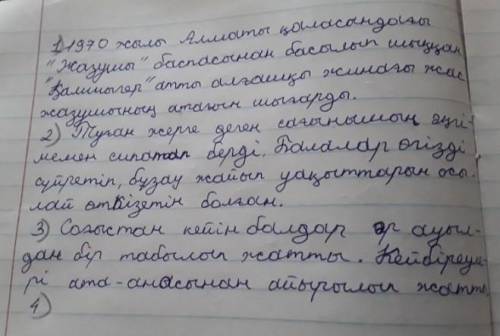 1) 1970 жылы Алматы қаласандағы
"Жазушы" баспасынан басылып шыққан
"Қамшыгер" атты алғашқы жинағы жас
жазушының атағын шығарды.
2) Туған жерге деген сағынышын әңгі-
мемен сипаттап берді. Балалар өгізді
сүйретіп, бұзау жайып уақыттарын осы-
лай өткізетін болған.
3) Соғыстан кейін балдар әр ауыл-
дан бір табылып жатты. Кейбіреуле-
рі ата-анасынан айырылып жатты.
4)